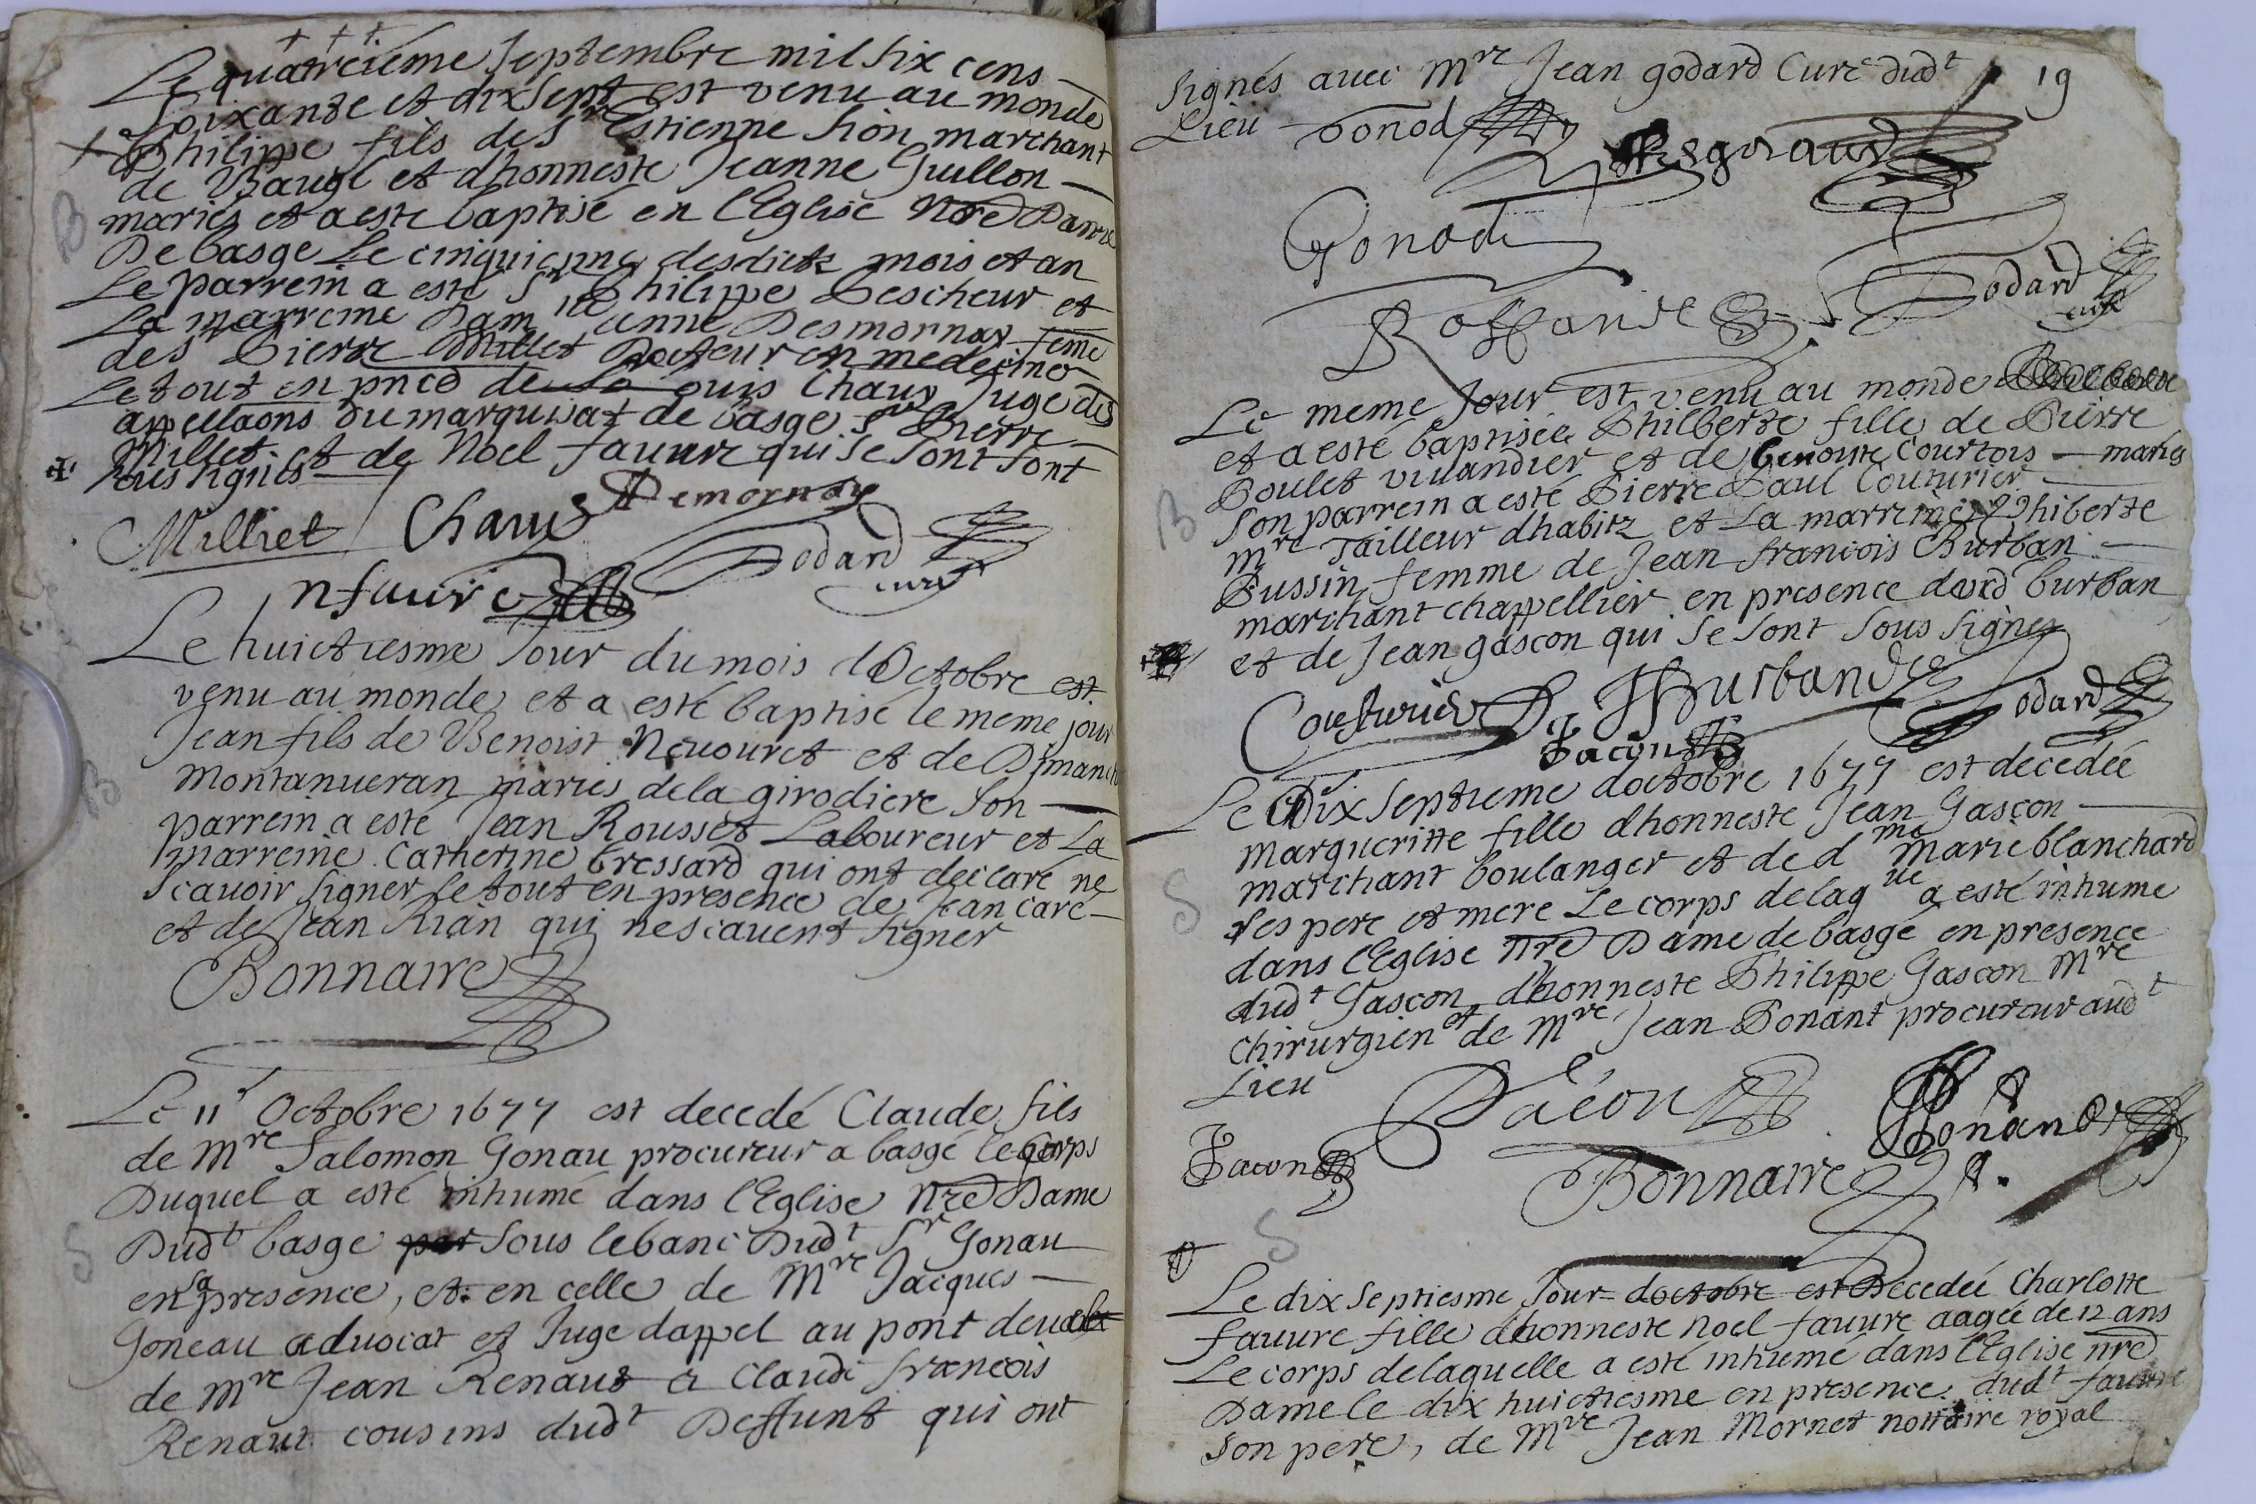 Le quatreieme Septembre mil six cens
soixante et dix sept est venu au monde
Philippe fils de Sr Estienne Sion marchant
de Baugé et dhonneste Jeanne Guillon
mariés et a esté baptisé en l'Eglise Nre Dame
De basge Le cinquienme desdictz mois et an
Le parrein a esté Sr Philippe Bescheur et
La marreine Damlle anne Desmornay feme
de Sr Pierre Milliet Docteur en medecine
Le tout en pnce de Louis Chaux Juge des
appellaons du marquisat de basge Sr Pierre
Milliet et de Noel fauure qui se sont sont
sous signés
Milliet Chaux Demornay
Godard curé
nfauure
Le huictiesme Jour du mois d'Octobre est
venu au monde et a esté baptisé le meme jour
Jean fils de Benoist Neuouret et de Dimanche
montanueran mariés de la girodiere son
parrein a esté Jean Rousset Laboureur et La
marreine Catherine bressard qui ont declaré ne
scauoir signer le tout en presence de Jean caré
et de Jean Rian qui ne scauent signer
Bonnaire
Le 11e Octobre 1677 est decedé Claude fils
de Mre Salomon Gonau procureur a basgé le corps
Duquel a esté inhumé dans l'Eglise Nre Dame
Dudt basge sous le banc Dudt Sr Gonau
en sa presence, et en celle de Mre Jacques
Goneau aduocat et Juge dappel au pont
de Mre Jean Renaud & Claude francois
Renaut cousins dudt Deffunt qui ont
signés auec Mre Jean godard Curé dudt 19
Lieu Gonod
Regnaud
Gonod
Godard curé
Rossande
Le meme Jour est venu au monde
et a esté baptisée Philberte fille de Pierre
Poulet viuandier et de benoiste Courtois mariés
Son parrein a esté Pierre Paul Couturier
mre Tailleur dhabitz et La marreine Phiberte
Pussin femme de Jean francois Burban
marchant chappellier en presence dud burban
et de Jean gascon qui se sont sous signés
Cousturier Burband Godard
Jacon
Le Dix Septieme doctobre 1677 est decedée
Margueritte fille dhonneste Jean Gascon
marchant boulanger et de dme marie blanchard
Ses pere et mere Le corps de laqlle a esté inhumé
dans l'Eglise Nre Dame de basgé en presence
dudt Gascon dhonneste Philippe Gascon Mre
Chirurgien et de Mre Jean Ponant procureur audt
Lieu
Jacon
Bonnaire
Le dix Septiesme Jour doctobre est Decedée Charlotte
fauure fille dhonneste Noel fauure aagée de 12 ans
Le corps de laquelle a esté inhumé dans l'Eglise Nre
Dame le dix huictiesme en presence dudt fauure
Son pere, de Mre Jean Mornet nottaire royal